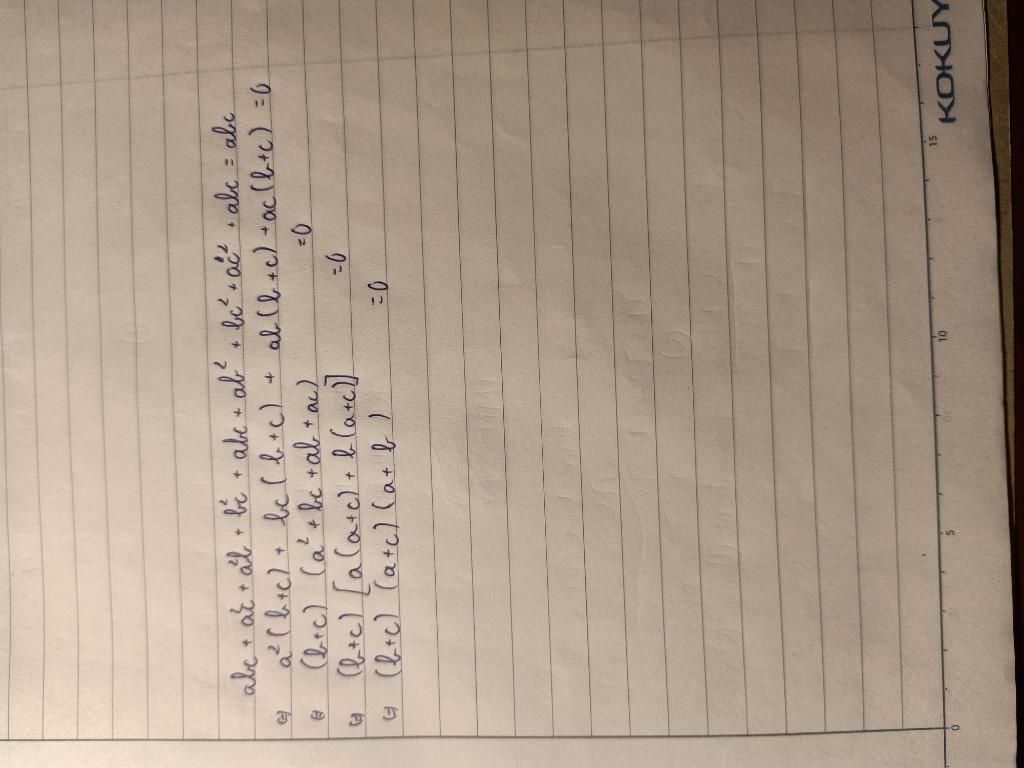 abc + a²c + a²b + b²c + abc + ab² + bc² + ac² + abc = abc
⇔ a²(b+c) + bc(b+c) + ab(b+c) + ac(b+c) = 0
⇔ (b+c) (a² + bc + ab + ac) = 0
⇔ (b+c) [a(a+c) + b(a+c)] = 0
⇔ (b+c) (a+c) (a+b) = 0
0 5 10 15
KOKUY